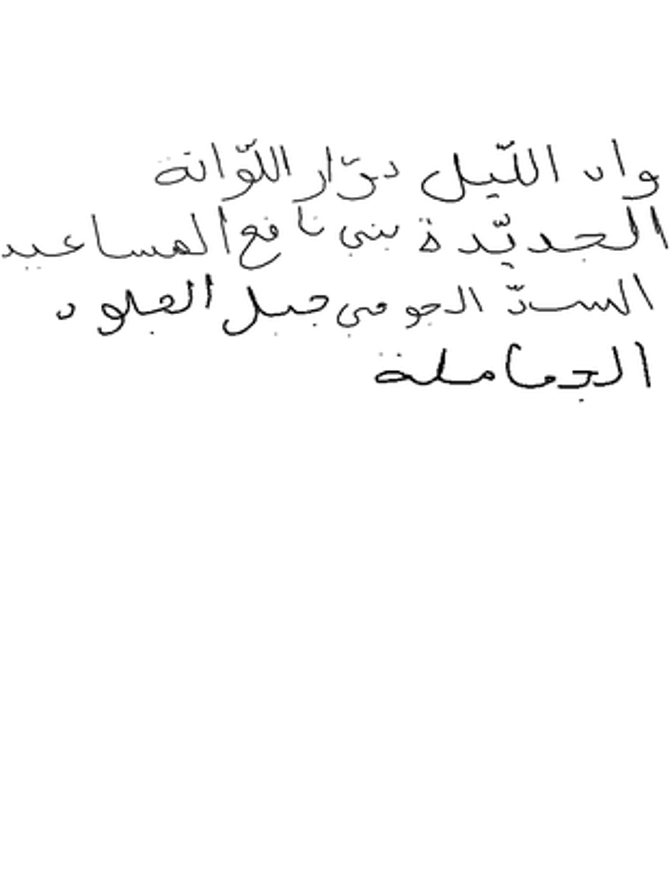 واد اللّيل دوّار اللّواتة
الجديّدة بني نافع المساعيد
السدّ الجومي جبل الجلود
الجماملة